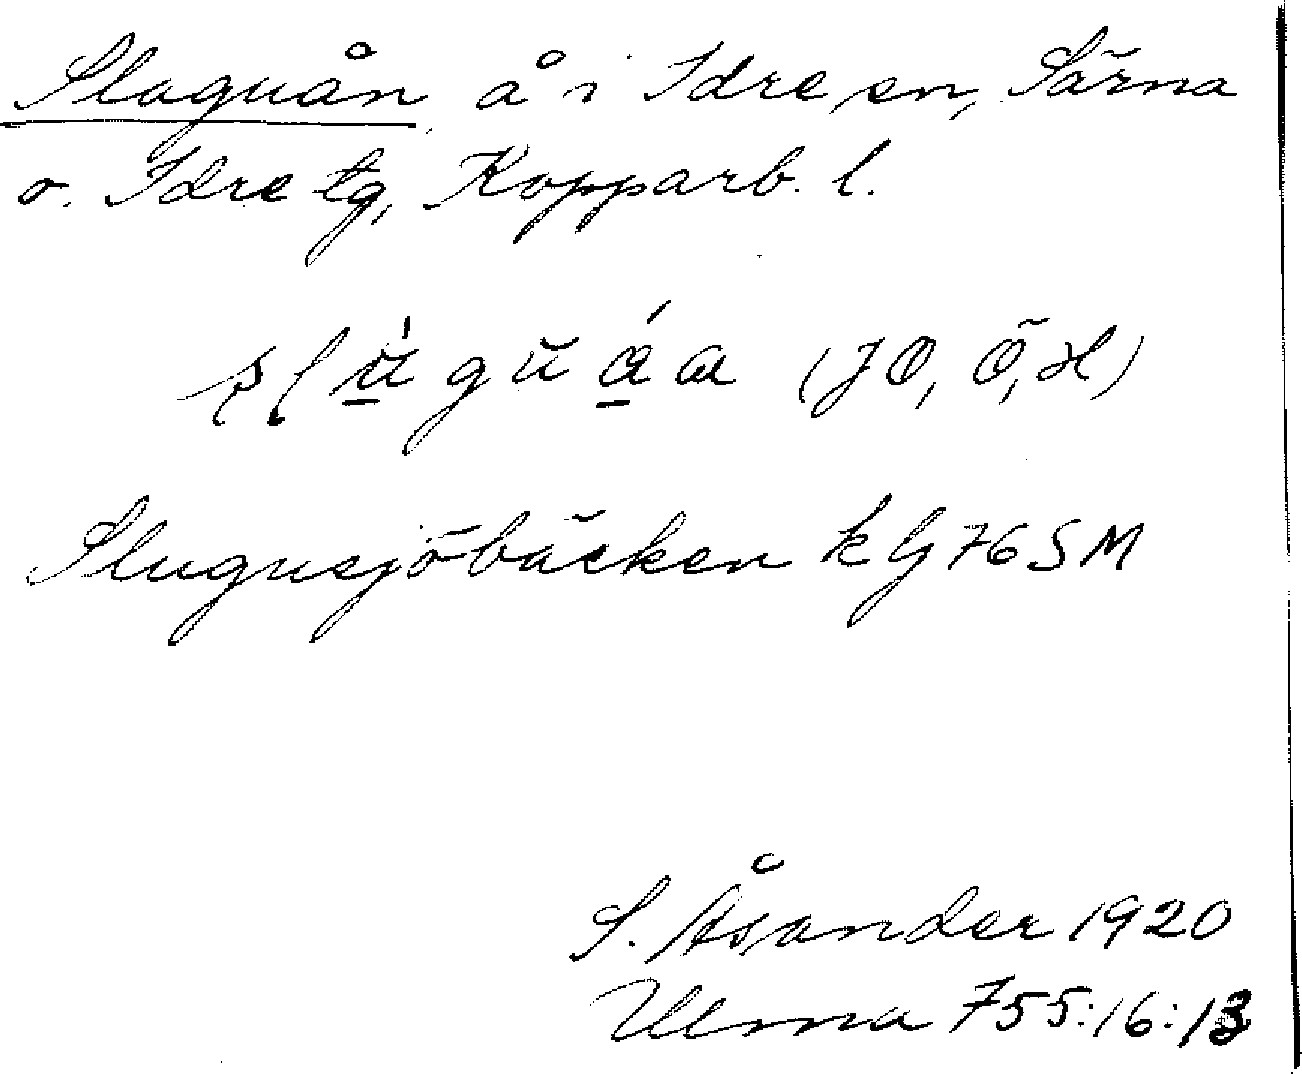 Slaguån, å i Idre sn, Särna
o. Idre tg, Kopparb. l.
(JO, Ö, H)
Slugusjöbäcken k G 76 SM
S. Åsander 1920
Ulma 755:16:13